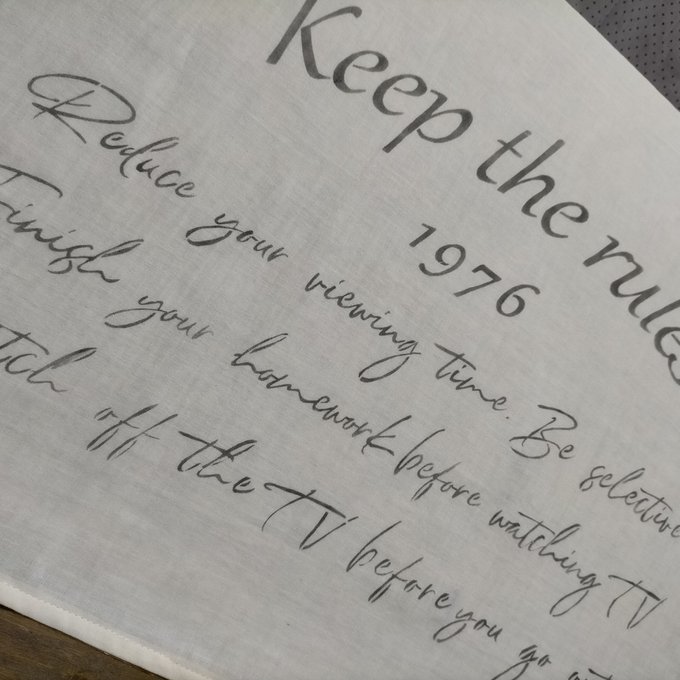 Keep the rules
1976
Reduce your viewing time. Be selective
Finish your homework before watching TV
off the TV before you go